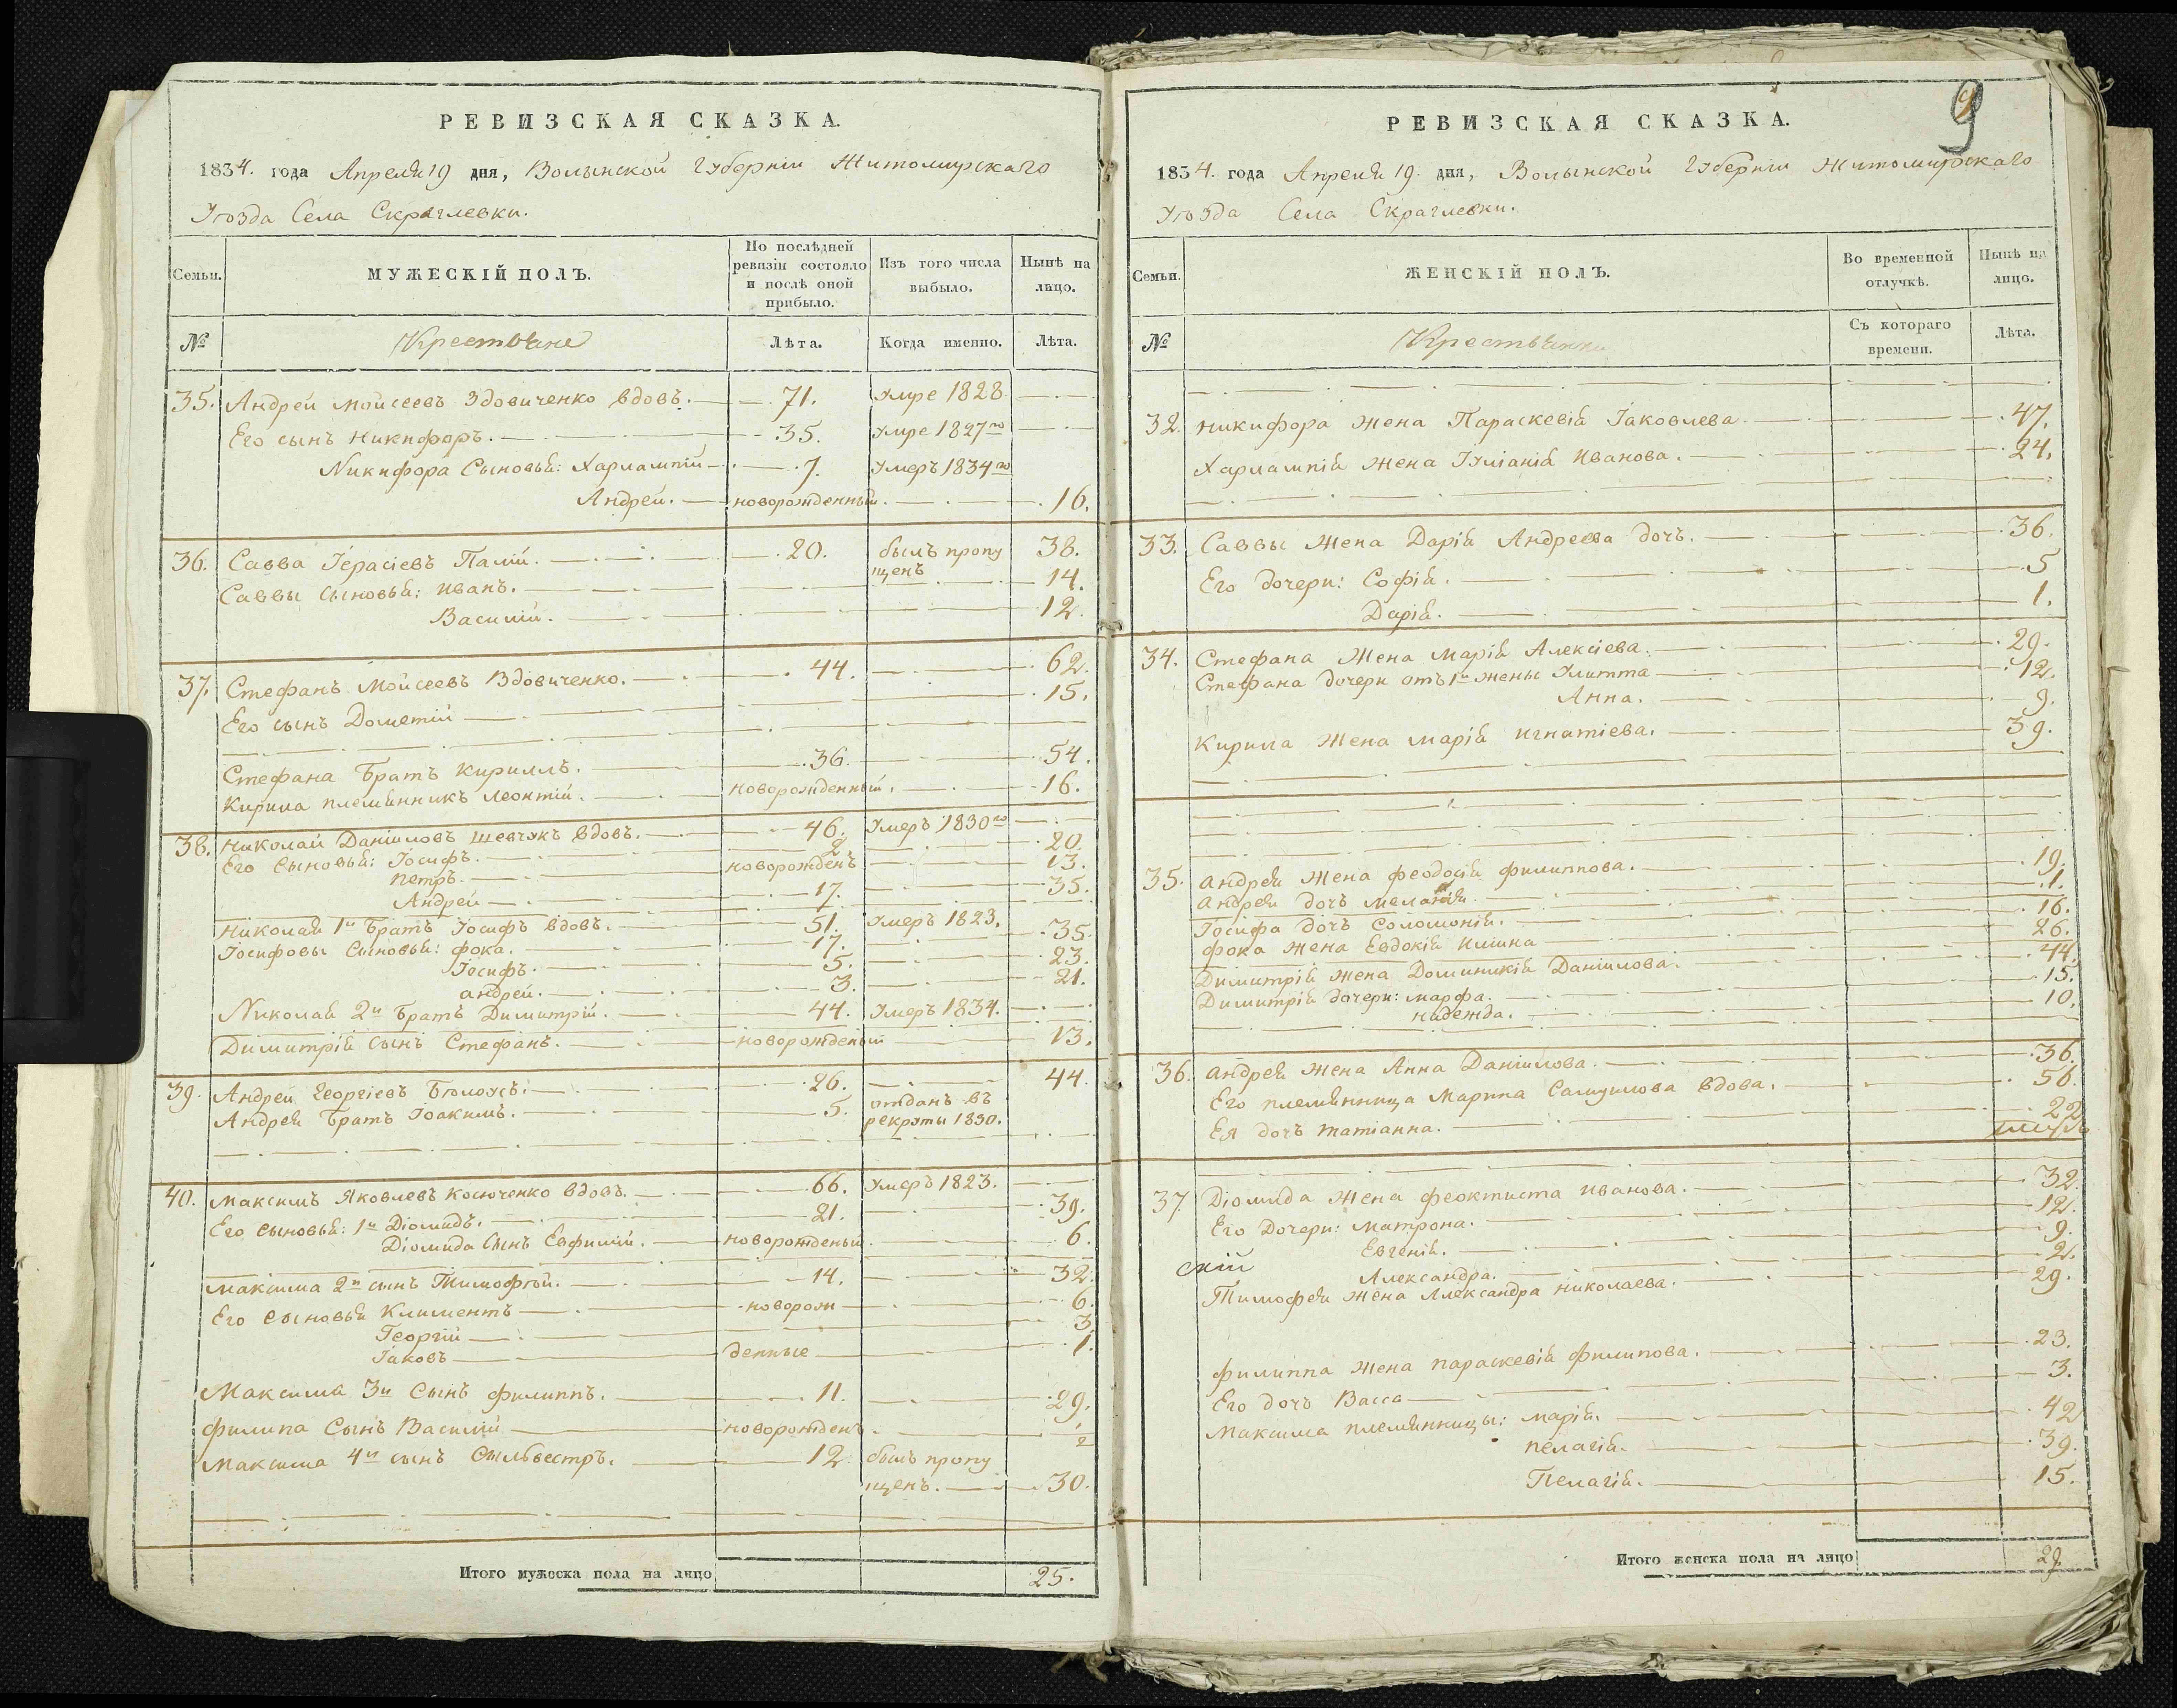 РЕВИЗСКАЯ СКАЗКА.
1834. года Апреля 19 дня, Волынской Губерніи Житомирскаго
Уѣзда Села Скраглевки.
Семьи.
МУЖЕСКІЙ ПОЛЪ.
По послѣдней ревизіи состояло и послѣ оной прибыло.
Изъ того числа выбыло.
Нынѣ на лицо.
№ Крестьяне Лѣта. Когда именно. Лѣта.
35. Андрей Мойсеевъ Здовиченко вдовъ. 71. Умре 1828
Его сынъ Никифоръ. 35. Умре 1827го
Никифора Сыновья: Харлампій 7. Умеръ 1834го
Андрей. новорожденный. 16.
36. Савва Герасіевъ Палій. 20. былъ пропущенъ 38.
Саввы Сыновья: Иванъ. 14.
Василій. 12.
37. Стефанъ Мойсеевъ Вдовиченко. 44. 62.
Его сынъ Дометій 15.
Стефана Братъ Кириллъ. 36. 54.
Кирила племянникъ Леонтій. новорожденный. 16.
38. Николай Даніиловъ Шевчукъ вдовъ. 46. Умеръ 1830го
Его Сыновья: Іосифъ. 2 20.
Петръ. новорожденъ 13.
Андрей 17. 35.
Николая 1й Братъ Іосифъ вдовъ. 51. Умеръ 1823.
Іосифовы Сыновья: Фока. 17. 35.
Іосифъ. 5. 23.
Андрей. 3. 21.
Николая 2й Братъ Димитрій. 44. Умеръ 1834.
Димитрія Сынъ Стефанъ. новорожденый 13.
39. Андрей Георгіевъ 26. 44.
Андрея Братъ Іоакимъ. 5. отданъ въ рекруты 1830.
40. Максимъ Яковлевъ Косюченко вдовъ. 66. Умеръ 1823.
Его Сыновья: 1й Діомидъ. 21. 39.
Діомида Сынъ Евфимій. новорожденый. 6.
Максима 2й сынъ Тимофѣй. 14. 32.
Его Сыновья Климентъ новорож 6.
Георгій 3.
Іаковъ денные 1.
Максима 3й Сынъ Филиппъ. 11. 29.
Филипа Сынъ Василій новорожденъ. 1/2
Максима 4й сынъ Сильвестръ. 12. былъ пропущенъ. 30.
Итого мужеска пола на лицо 25.
9
РЕВИЗСКАЯ СКАЗКА.
1834. года Апреля 19. дня, Волынской Губерніи Житомирскаго
Уѣзда Села Скраглевки.
Семьи.
ЖЕНСКІЙ ПОЛЪ.
Во временной отлучкѣ.
Нынѣ на лицо.
№ Крестьянки Съ котораго времени. Лѣта.
32. Никифора Жена Параскевія Іаковлева. 47.
Харлампія Жена Іуліанія Иванова. 24.
33. Саввы Жена Дарія Андреева дочь. 36.
Его дочери: Софія. 5
Дарія. 1.
34. Стефана Жена Марія Алексіева. 29.
Стефана дочери отъ 1й жены Улитта 12.
Анна. 9.
Кирила Жена Марія Игнатіева. 39.
35. Андрея Жена Феодосія Филиппова. 19.
Андрея дочь Меланія. 1.
Іосифа дочь Соломонія. 16.
Фока Жена Евдокія Илiина 26.
Димитрія Жена Доминикія Даніилова. 44.
Димитрія дочери: Марфа. 15.
Надежда. 10.
36. Андрея Жена Анна Даніилова. 36.
Его племянница Марина Самуилова вдова. 56.
Ея дочь Татіанна. 22
37. Діомида Жена Феоктиста Иванова. 32.
Его Дочери: Матрона. 12.
Евгенія. 9.
скій
Александра. 2.
Тимофея Жена Александра Николаева. 29.
Филиппа Жена Параскевія Филипова. 23.
Его дочь Васса 3.
Максима племянницы: Марія. 42
Пелагія. 39.
Пелагія. 15.
Итого женска пола на лицо 29.